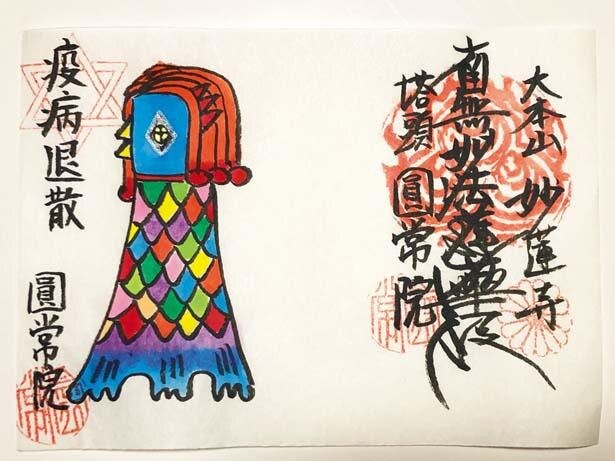 大本山 妙蓮寺
南無妙法蓮華経
塔頭 圓常院
疫病退散
圓常院